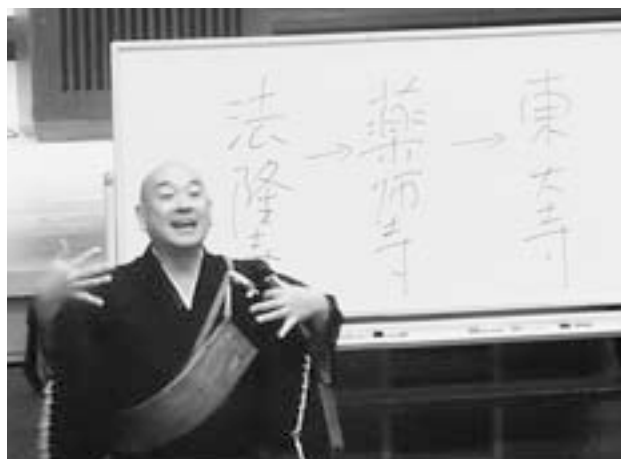 法隆寺→薬師寺→東大寺